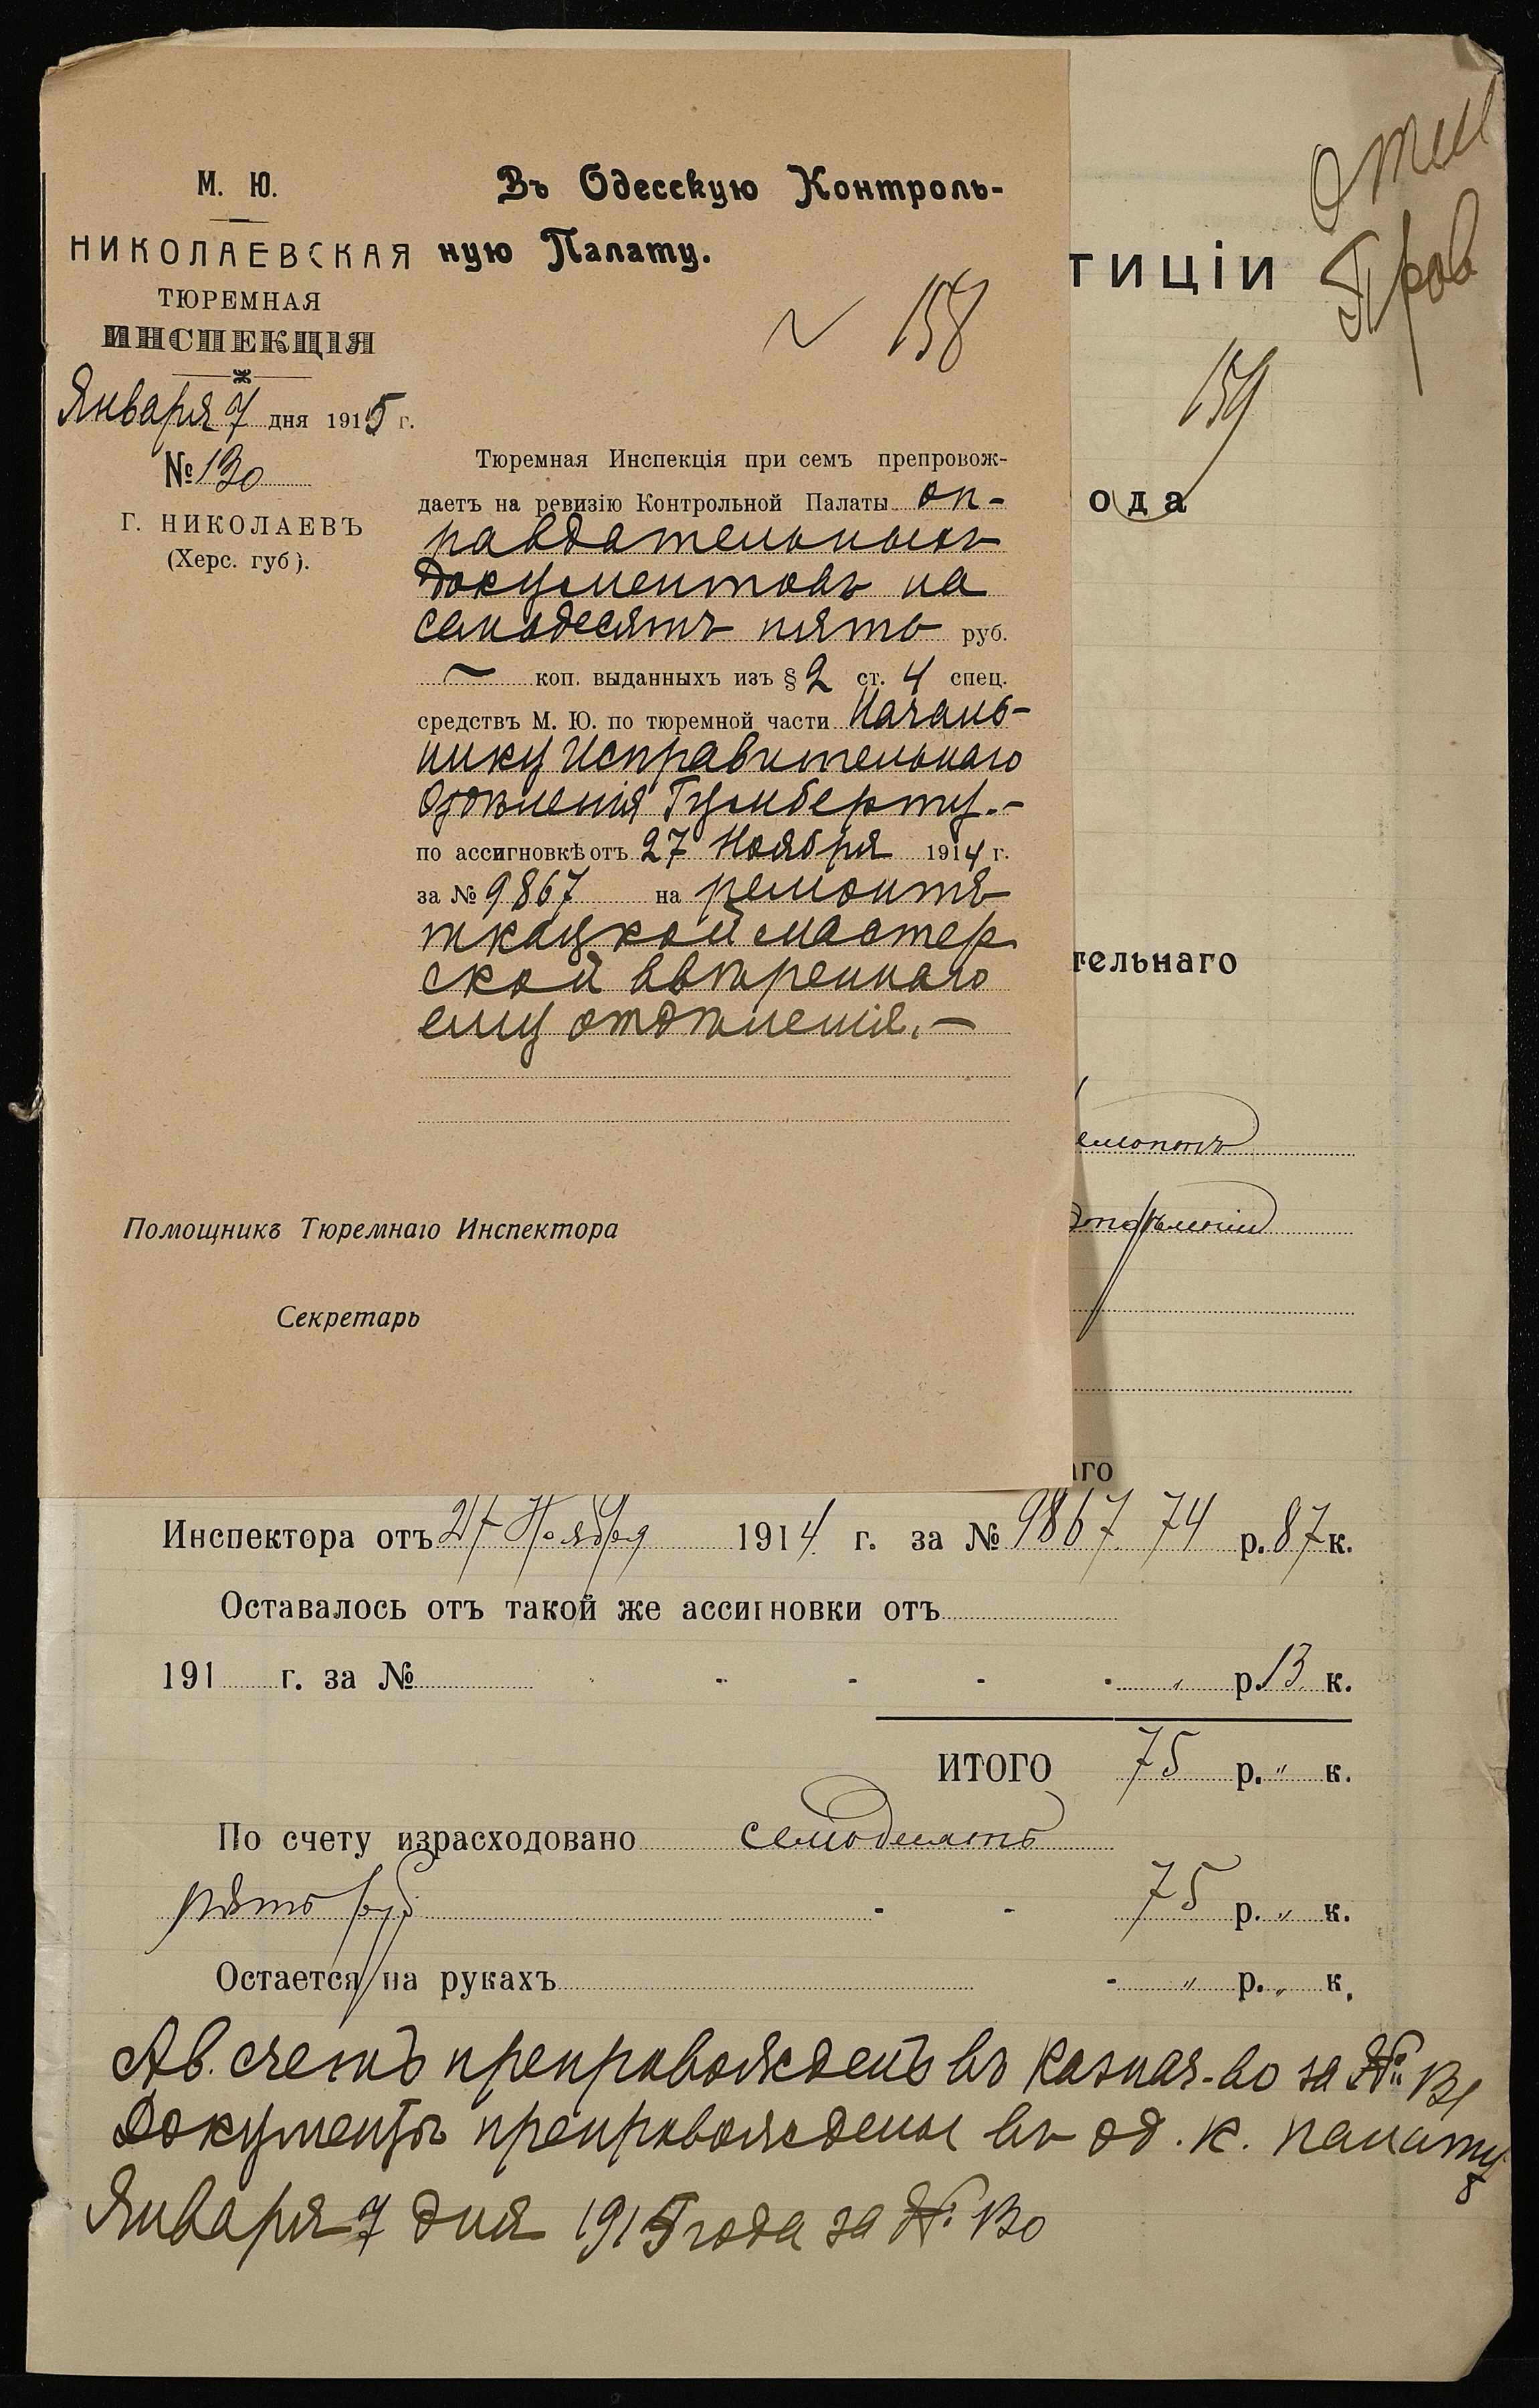 М. Ю.
НИКОЛАЕВСКАЯ
ТЮРЕМНАЯ
ИНСПЕКЦІЯ
Января 7 дня 1915 г.
№ 130
Г. НИКОЛАЕВЪ
(Херс. губ).
Въ Одесскую Контроль-
ную Палату.
158
Тюремная Инспекція при семъ препровож-
даетъ на ревизію Контрольной Палаты оп-
равдательныхъ
документовъ на
семьдесятъ пять руб.
— коп. выданныхъ изъ § 2 ст. 4 спец.
средствъ М. Ю. по тюремной части Началь-
нику Исправительнаго
Отдѣленія Гумберту.-
по ассигновкѣ отъ 27 Ноября 1914 г.
за № 9867 на ремонтъ
ткацкой мастер
ской ввѣреннаго
ему отдѣленія.—
Помощникъ Тюремнаго Инспектора
Секретарь
тиціи
159
ода
тельнаго
емонтъ
отдѣленіи
аго
Инспектора отъ 27 Ноября 1914 г. за № 9867 74 р. 87 к.
Оставалось отъ такой же ассигновки отъ
191 г. за № - - - - „ р. 13 к.
ИТОГО 75 р. „ к.
По счету израсходовано семьдесятъ
пять руб. - - 75 р. „ к.
Остается на рукахъ - „ р. „ к.
Ав. счетъ препровожденъ въ казнач-во за №
Документы препровождены въ од. к. палату
Января 7 дня 1915 года за № 130